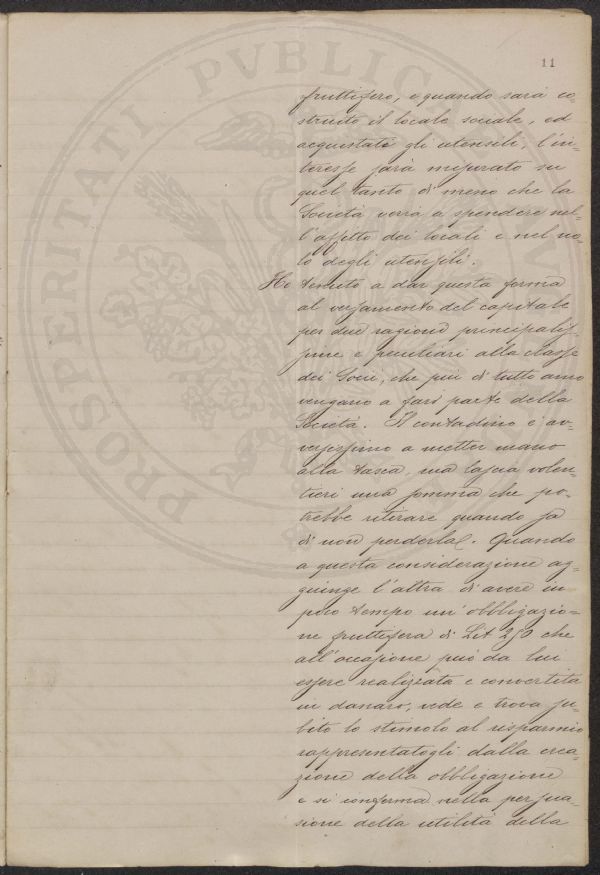 11
fruttifero, e quando sarà co-
struito il locale sociale, ed
acquistati gli utensili, l'in-
teresse sarà misurato su
quel tanto di meno che la
Società verrà a spendere nel-
l'affitto dei locali e nel no-
lo degli utensili.
Ho tenuto a dar questa forma
al versamento del capitale
per due ragioni principalis-
sime e peculiari alla classe
dei Socii, che più di tutto amo
vengano a far parte della
Società. Il contadino è av-
versissimo a metter mano
alla tasca, ma lascia volen-
tieri una somma che po-
trebbe ritirare quando sa
di non perderla. Quando
a questa considerazione ag-
giunge l'altra di avere in
poco tempo un'obbligazio-
ne fruttifera di Lit 250 che
all'occasione può da lui
essere realizzata e convertita
in danaro, vede e trova su-
bito lo stimolo al risparmio
rappresentatogli dalla crea-
zione della obbligazione
e si conferma nella persua-
sione della utilità della
PROSPERITATI PVBLICAE